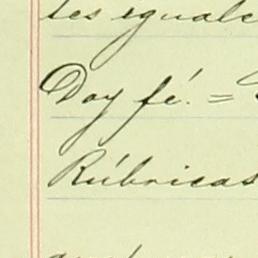 tes iguale
Doy fé. =
Rúbricas